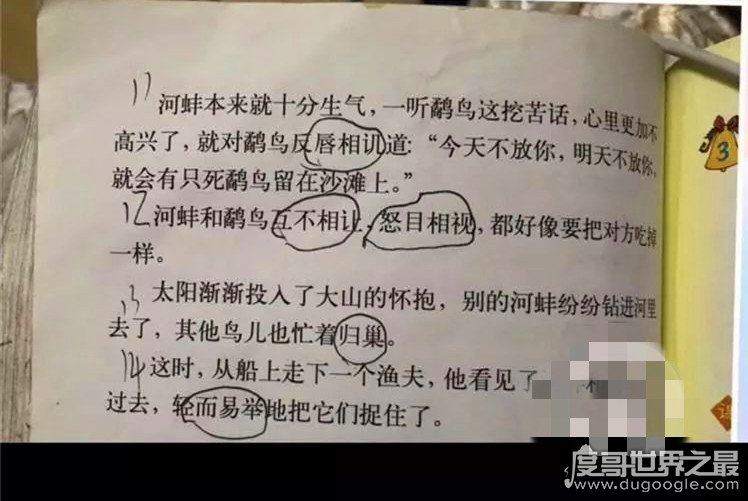 11 河蚌本来就十分生气，一听鹬鸟这挖苦话，心里更加不
高兴了，就对鹬鸟反唇相讥道：“今天不放你，明天不放你，
就会有只死鹬鸟留在沙滩上。”
12 河蚌和鹬鸟互不相让，怒目相视，都好像要把对方吃掉
一样。
13 太阳渐渐投入了大山的怀抱，别的河蚌纷纷钻进河里
去了，其他鸟儿也忙着归巢。
14 这时，从船上走下一个渔夫，他看见了
过去，轻而易举地把它们捉住了。
3
度哥世界之最
www.dugoogle.com